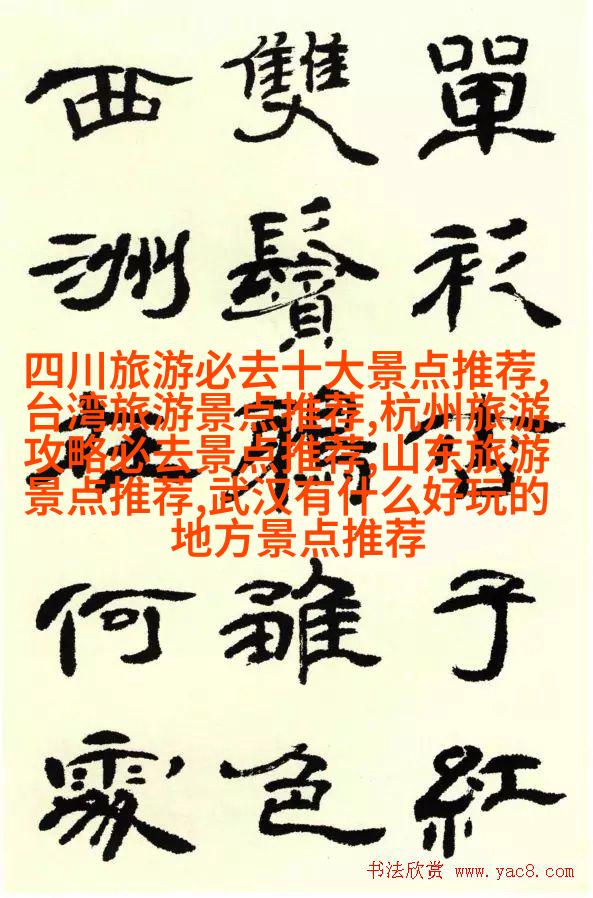 單衫子紅
雙鬢雛色
西洲在何處
四川旅游必去十大景点推荐,
台湾旅游景点推荐,杭州旅游
攻略必去景点推荐,山东旅游
景点推荐,武汉有什么好玩的
地方景点推荐
书法欣赏 www.yac8.com